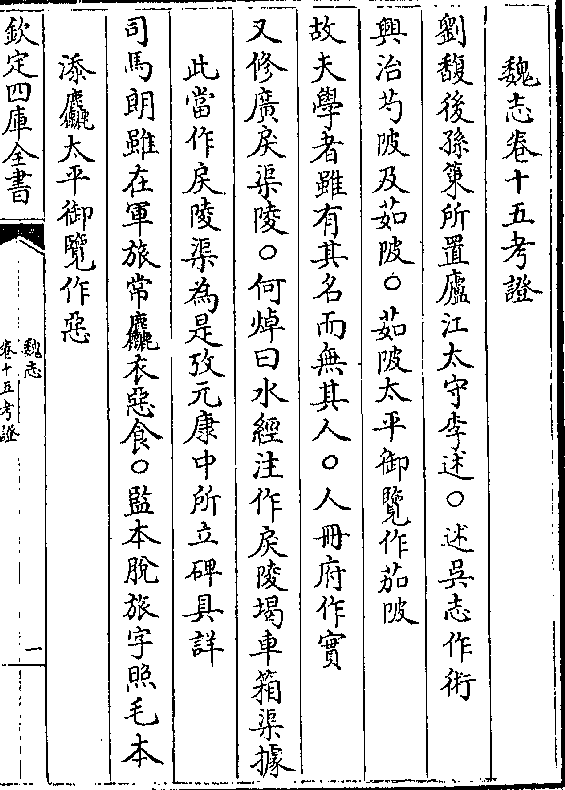 魏志卷十五考證
劉馥後孫策所置廬江太守李述○述吳志作術
興治芍陂及茹陂○茹陂太平御覽作茄陂
故夫學者雖有其名而無其人○人冊府作實
又修廣戾渠陵○何焯曰水經注作戾陵堨車箱渠據
此當作戾陵渠為是攷元康中所立碑具詳
司馬朗雖在軍旅常麤衣惡食○監本脫旅字照毛本
添麤太平御覽作惡
欽定四庫全書
魏志
卷十五考證
一